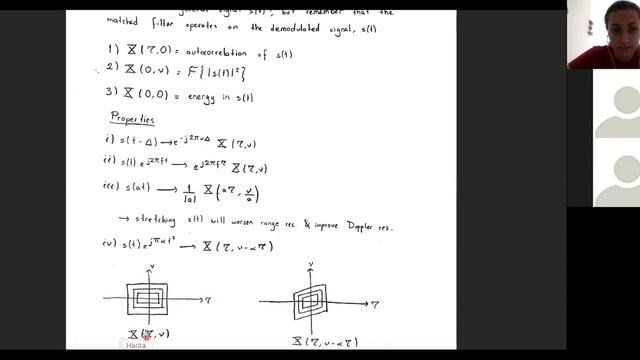 general signal s(t), but remember that the
matched filter operates on the demodulated signal, s(t).
1) X(τ,0) = autocorrelation of s(t)
2) X(0,ν) = F{|s(t)|²}
3) X(0,0) = energy in s(t)
Properties
i) s(t-Δ) → e^-j2πνΔ X(τ,ν)
ii) s(t) e^j2πft → e^j2πfτ X(τ,ν)
iii) s(at) → 1/|a| X(aτ, ν/a)
→ stretching s(t) will worsen range res. & improve Doppler res.
iv) s(t) e^jπαt² → X(τ, ν-ατ)
ν
ν
τ
τ
X(τ,ν)
X(τ, ν-ατ)
Harita